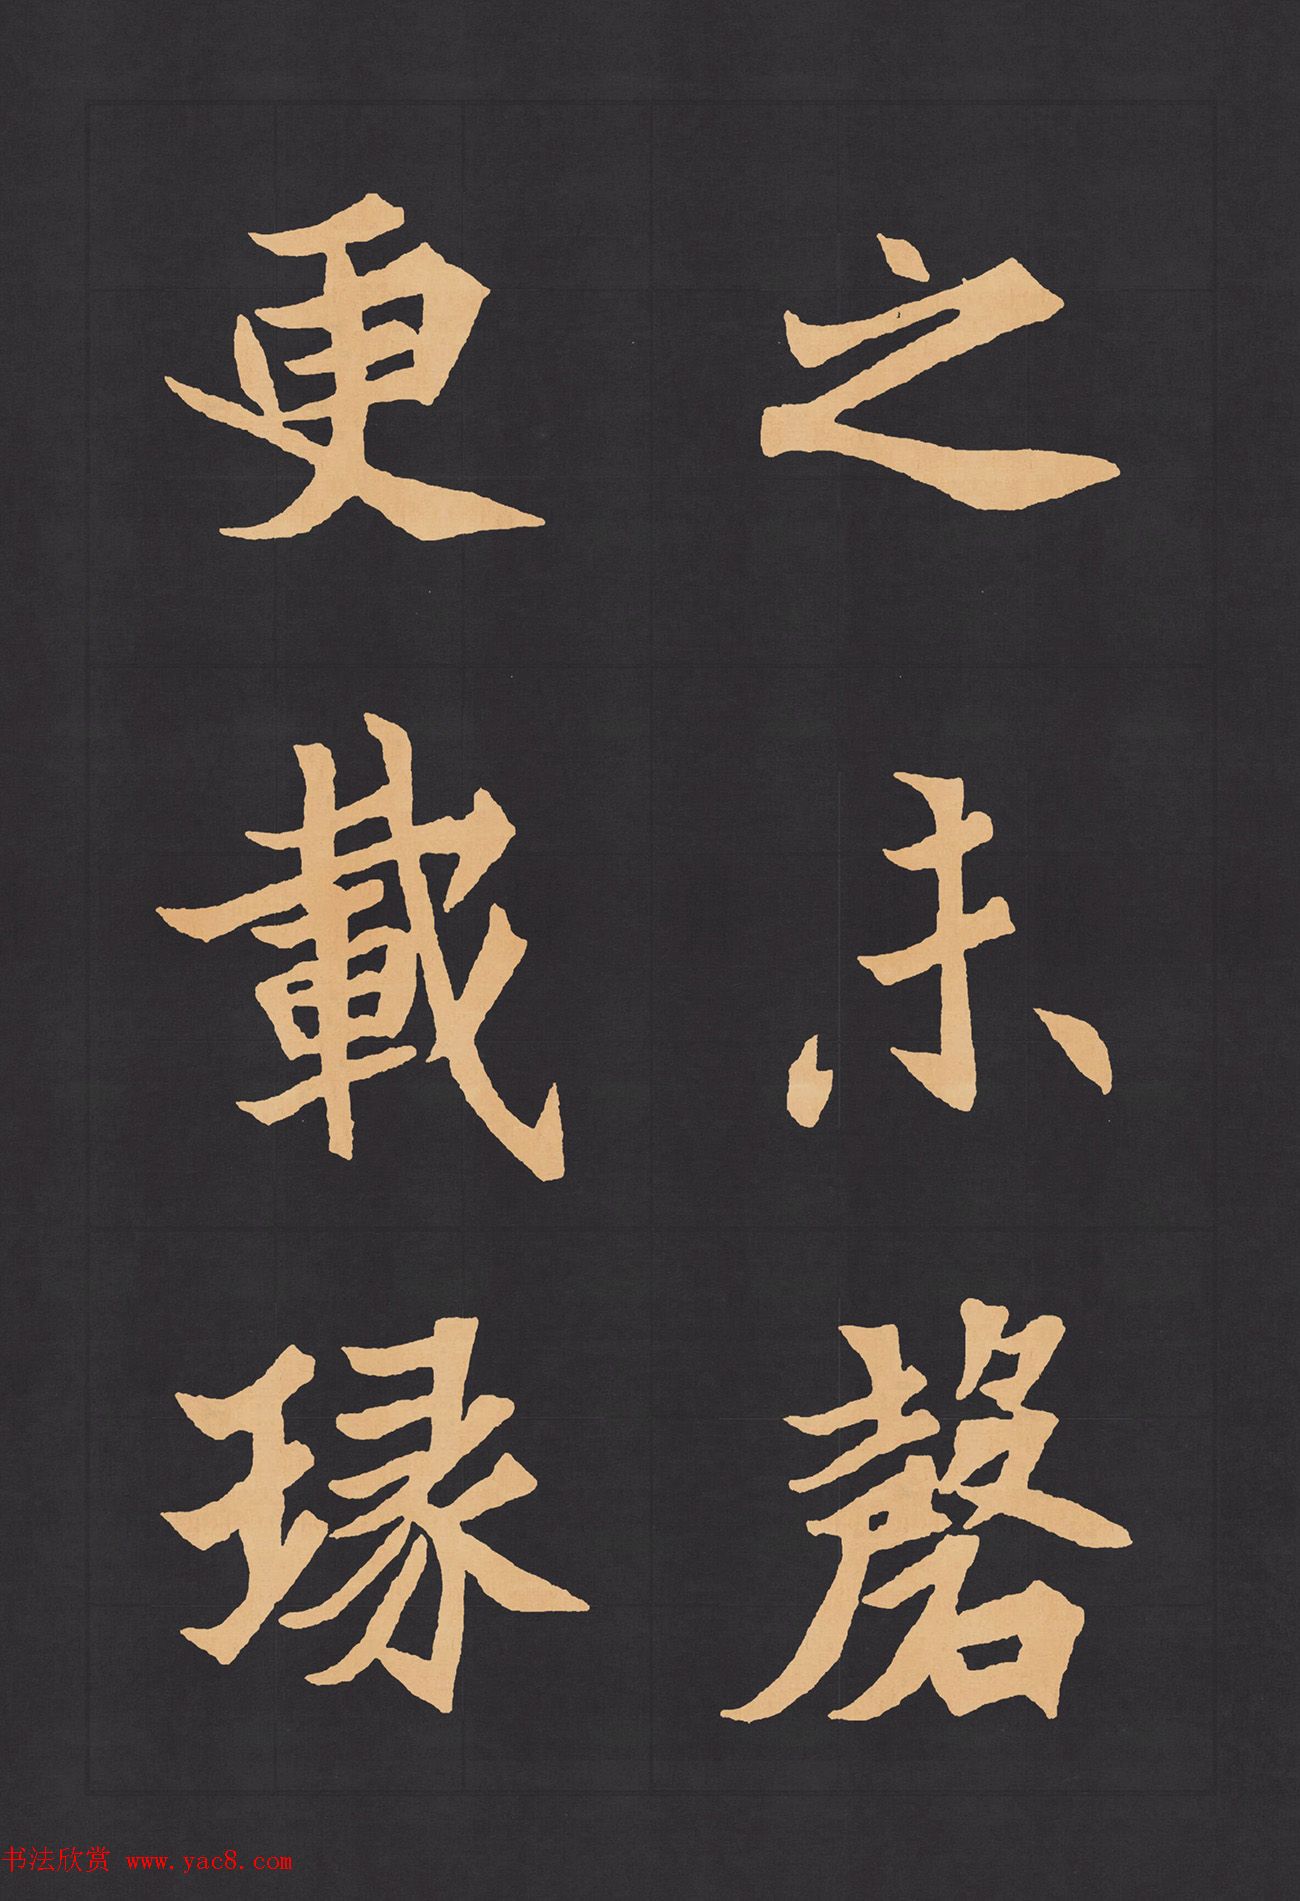 之未磬
更載琢
书法欣赏 www.yac8.com